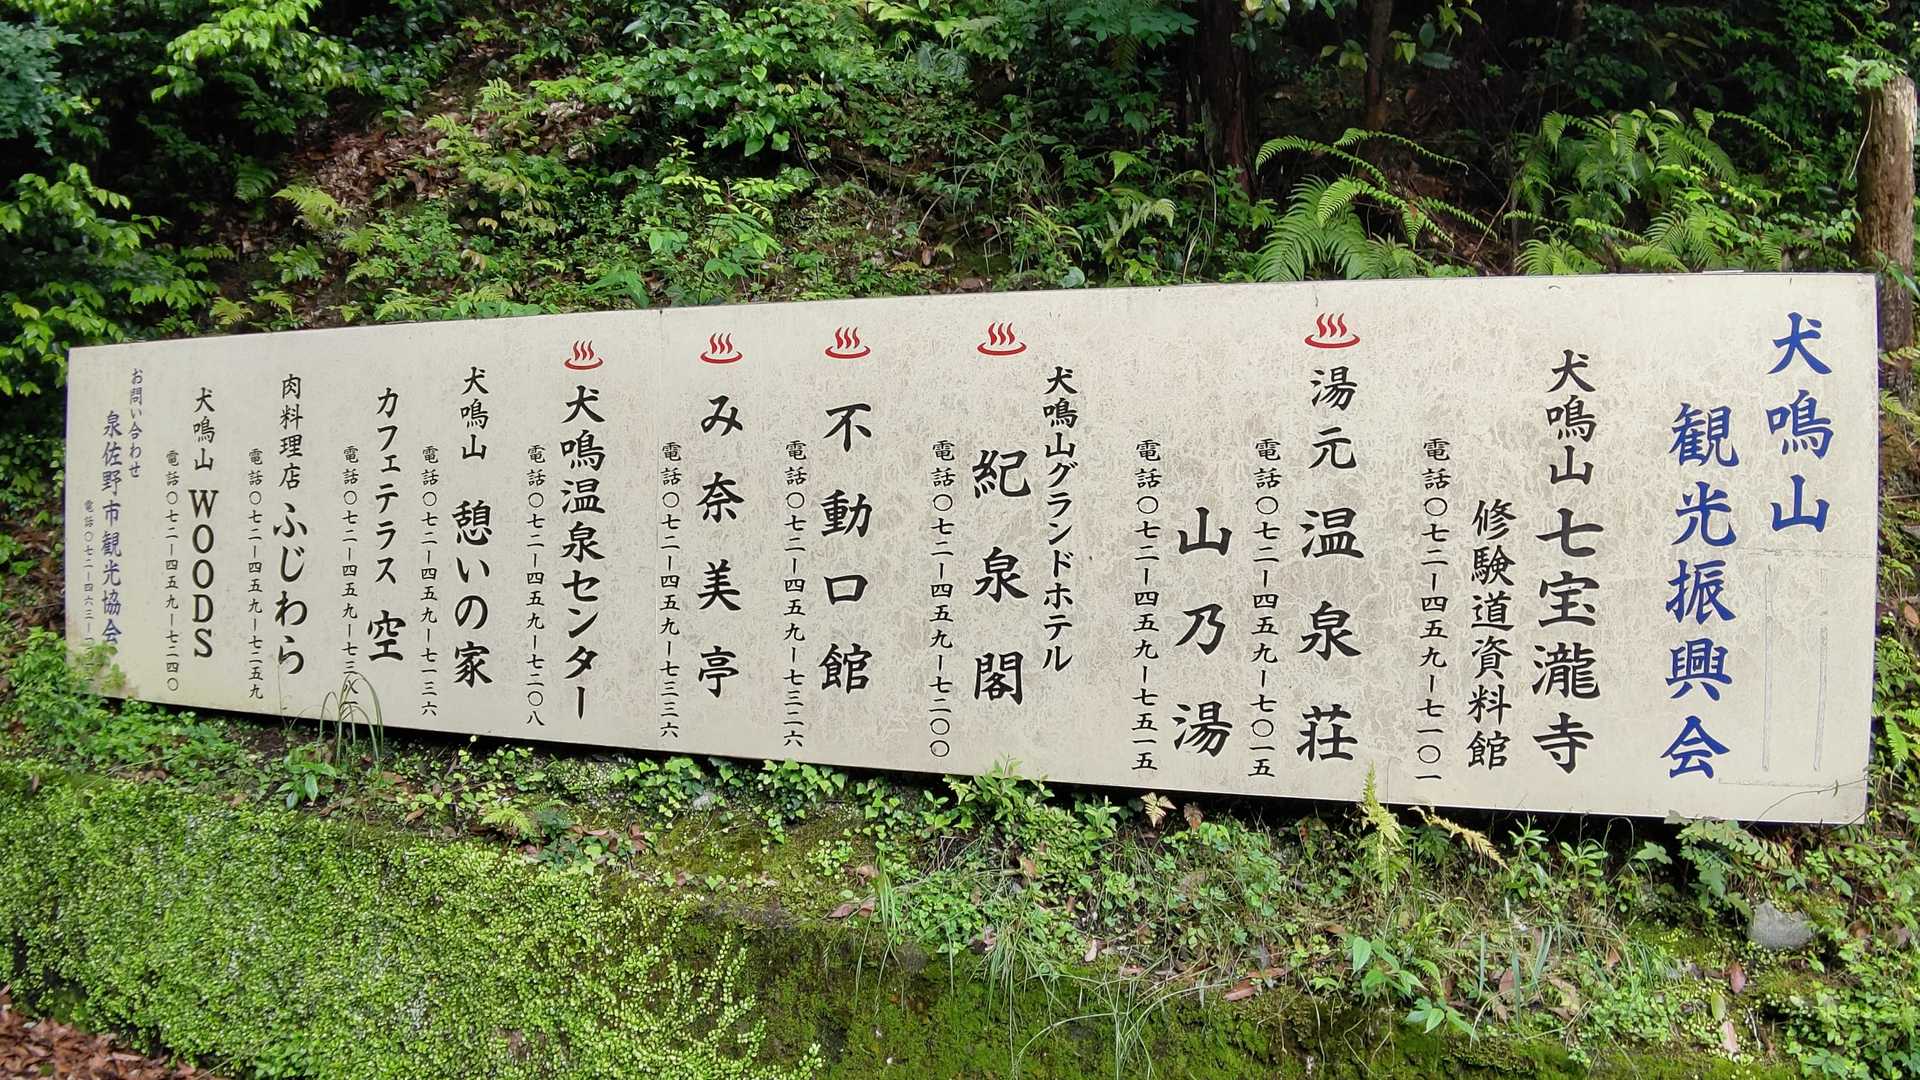 犬鳴山
観光振興会
犬鳴山七宝瀧寺
修験道資料館
電話〇七二ー四五九ー七一〇一
湯元温泉荘
電話〇七二ー四五九ー七〇一五
山乃湯
電話〇七二ー四五九ー七五一五
犬鳴山グランドホテル
紀泉閣
電話〇七二ー四五九ー七二〇〇
不動口館
電話〇七二ー四五九ー七三二六
み奈美亭
電話〇七二ー四五九ー七三三六
犬鳴温泉センター
電話〇七二ー四五九ー七二〇八
犬鳴山 憩いの家
電話〇七二ー四五九ー七一三六
カフェテラス 空
電話〇七二ー四五九ー七三
肉料理店 ふじわら
電話〇七二ー四五九ー七二五九
犬鳴山 WOODS
電話〇七二ー四五九ー七二四〇
お問い合わせ
泉佐野市観光協会
電話〇七二ー四六三ー